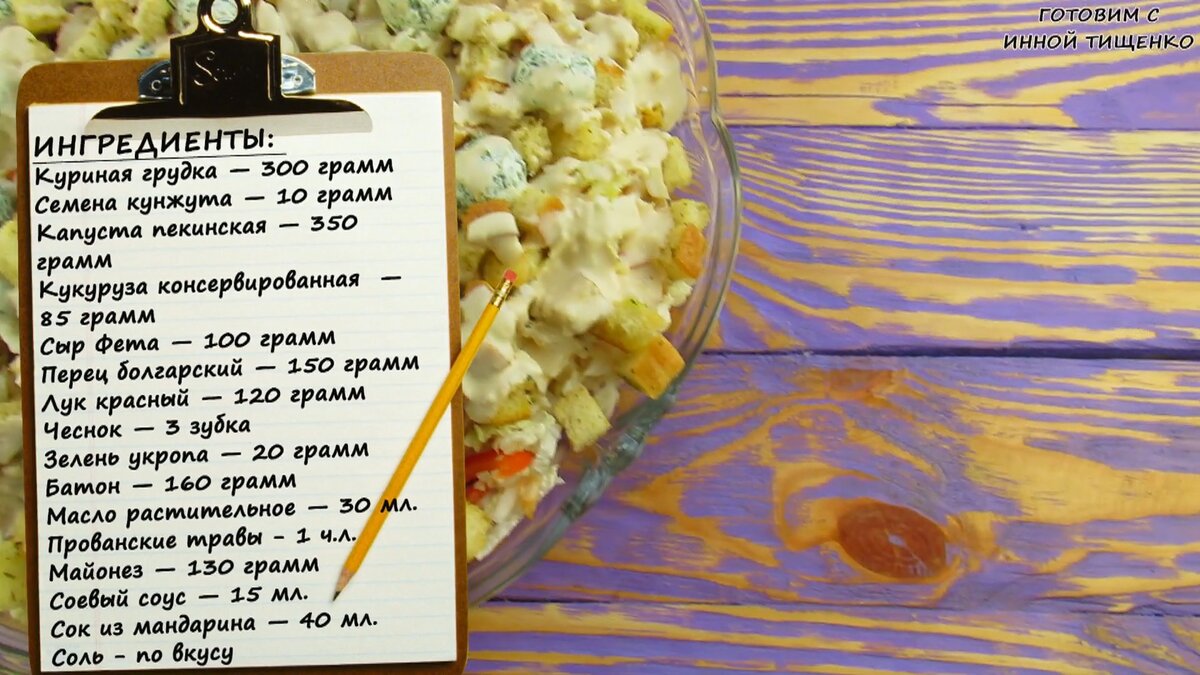 ГОТОВИМ С
ИННОЙ ТИЩЕНКО
ИНГРЕДИЕНТЫ:
Куриная грудка — 300 грамм
Семена кунжута — 10 грамм
Капуста пекинская — 350
грамм
Кукуруза консервированная —
85 грамм
Сыр Фета — 100 грамм
Перец болгарский — 150 грамм
Лук красный — 120 грамм
Чеснок — 3 зубка
Зелень укропа — 20 грамм
Батон — 160 грамм
Масло растительное — 30 мл.
Прованские травы - 1 ч.л.
Майонез — 130 грамм
Соевый соус — 15 мл.
Сок из мандарина — 40 мл.
Соль - по вкусу